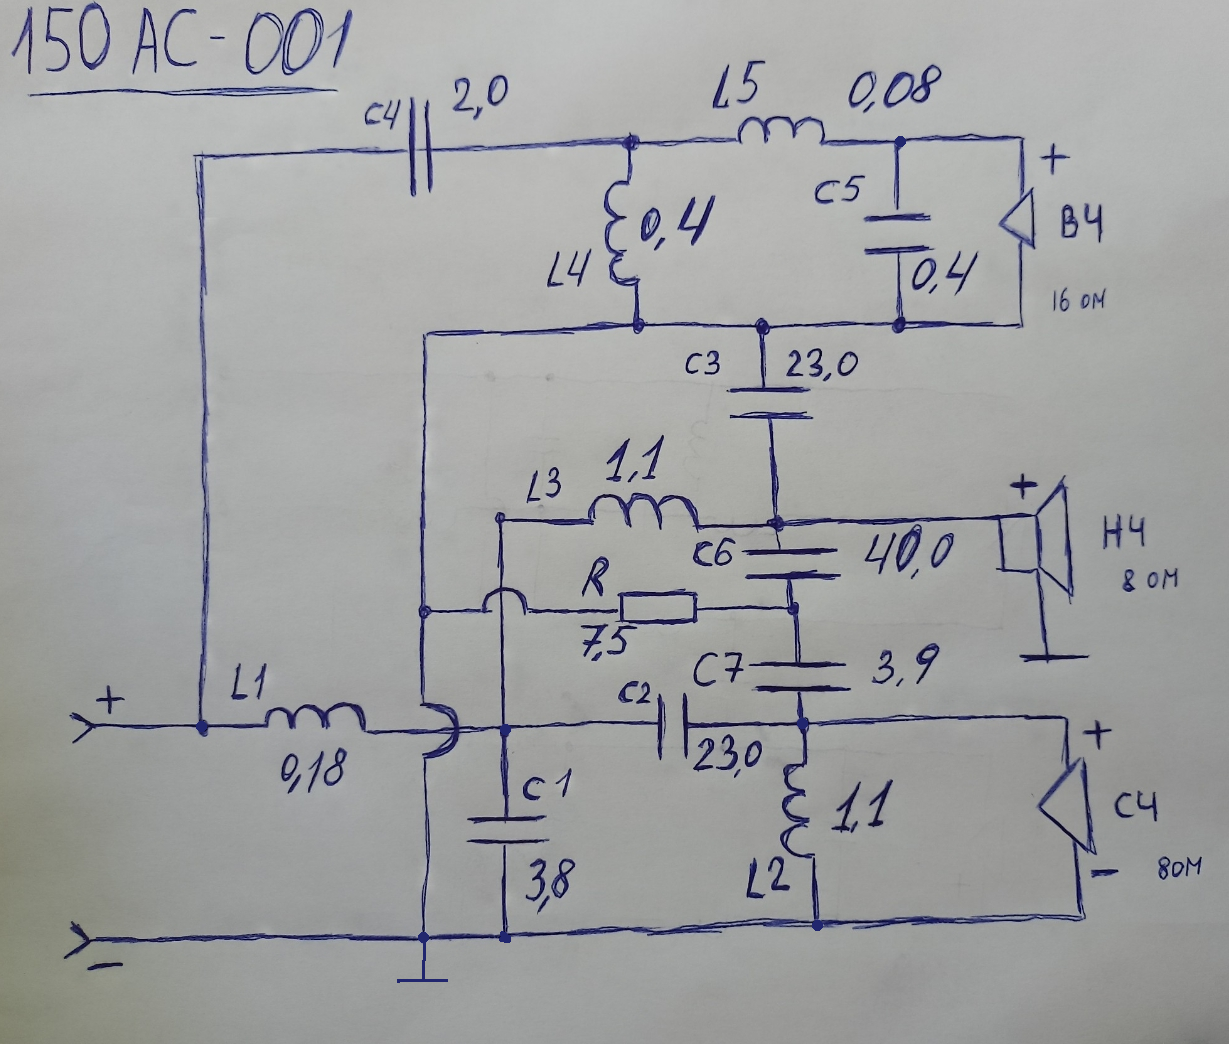 150 АС-001
C4 2,0
L5 0,08
+
C5
0,4
L4
ВЧ
0,4
16 ОМ
C3 23,0
1,1
L3
+
C6 40,0
НЧ
8 ОМ
R
7,5
C7 3,9
C2
L1
+
+
23,0
0,18
C1
1,1
СЧ
3,8
L2
-
8 ОМ
-